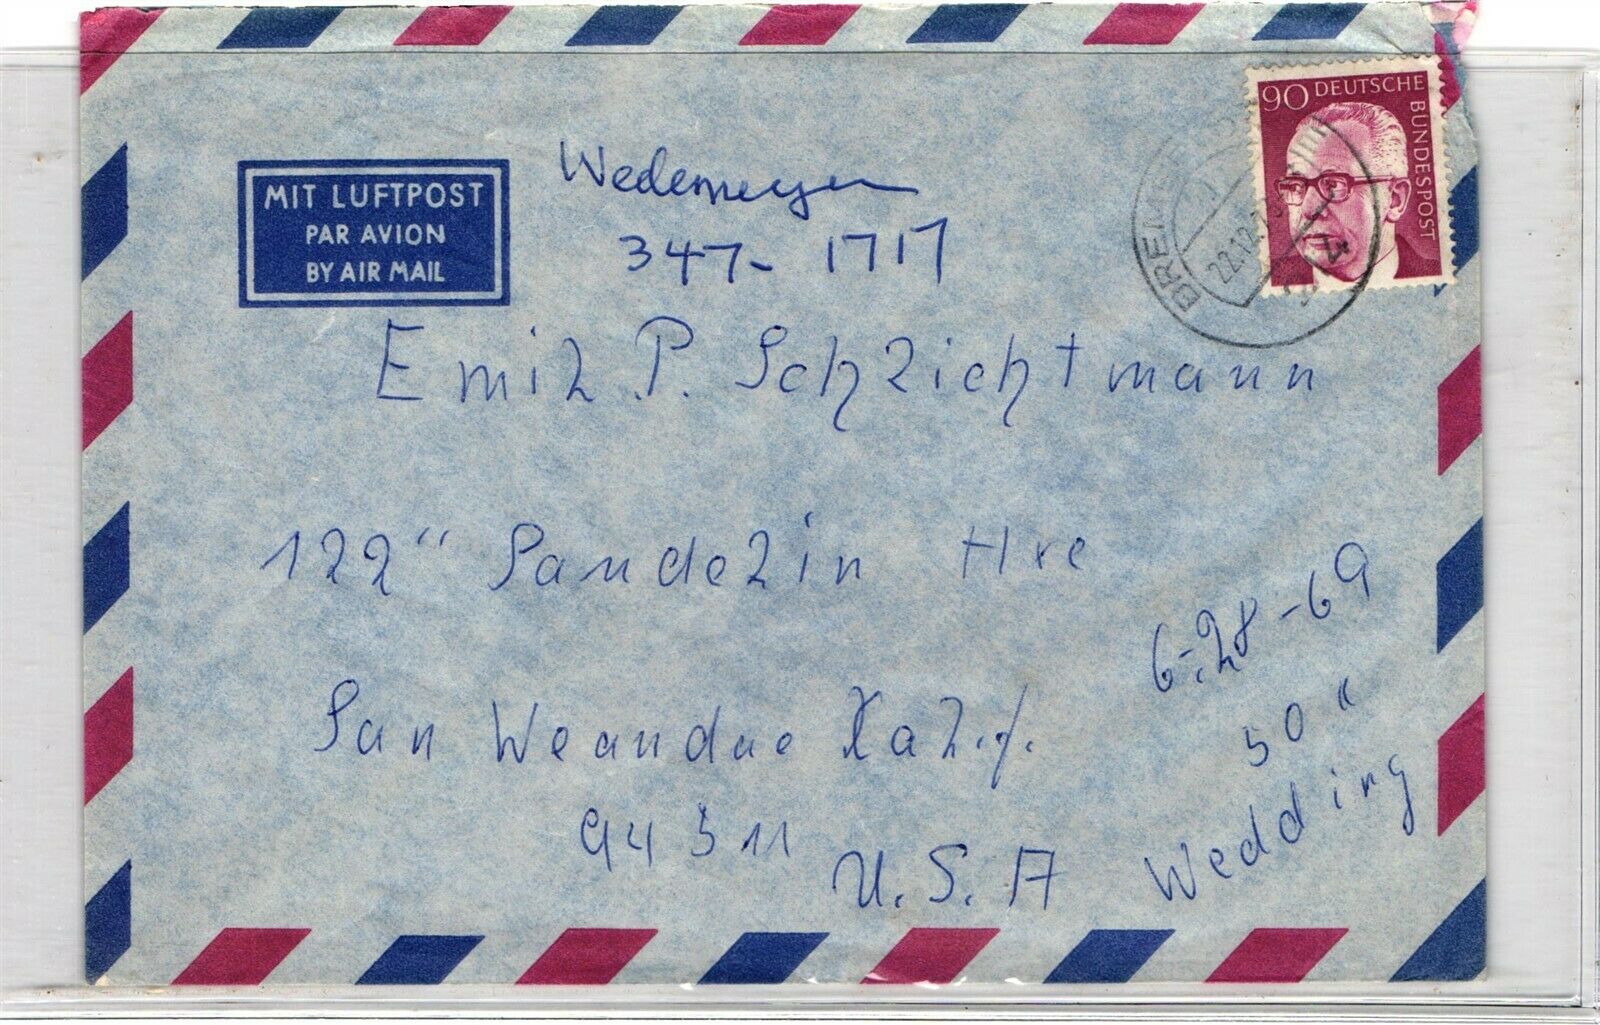 90 DEUTSCHE
BUNDESPOST
MIT LUFTPOST
PAR AVION
BY AIR MAIL
Wedemeyer
347- 1717
Emil P. Schlichtmann
122" Pandelin Hre
San Weandae Kalif.
94511
U.S.A
6-28-69
50"
Wedding
22.12.7